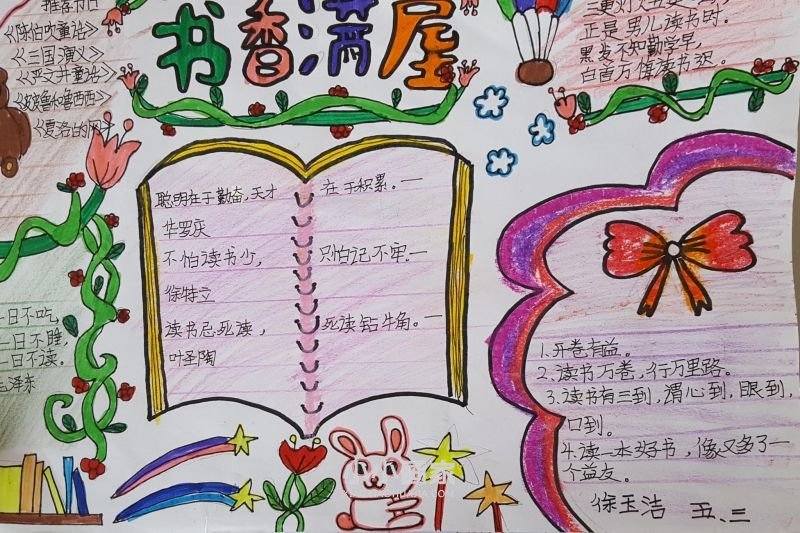 推荐书目
《陈伯吹童话》
《三国演义》
《严文井童话》
《皮皮鲁和鲁西西》
《夏洛的网》
书香满屋
正是男儿读书时。
黑发不知勤学早,
白首方悔读书迟。
聪明在于勤奋,天才在于积累。一
华罗庆
不怕读书少,只怕记不牢.一
徐特立
读书忌死读,死读钻牛角。一
叶圣陶
一日不吃,
一日不睡,
一日不读。
毛泽东
1.开卷有益。
2.读书万卷,行万里路。
3.读书有三到,渭心到,眼到,
口到。
4.读一本好书,像又多了一
个益友。
徐玉洁 五、三